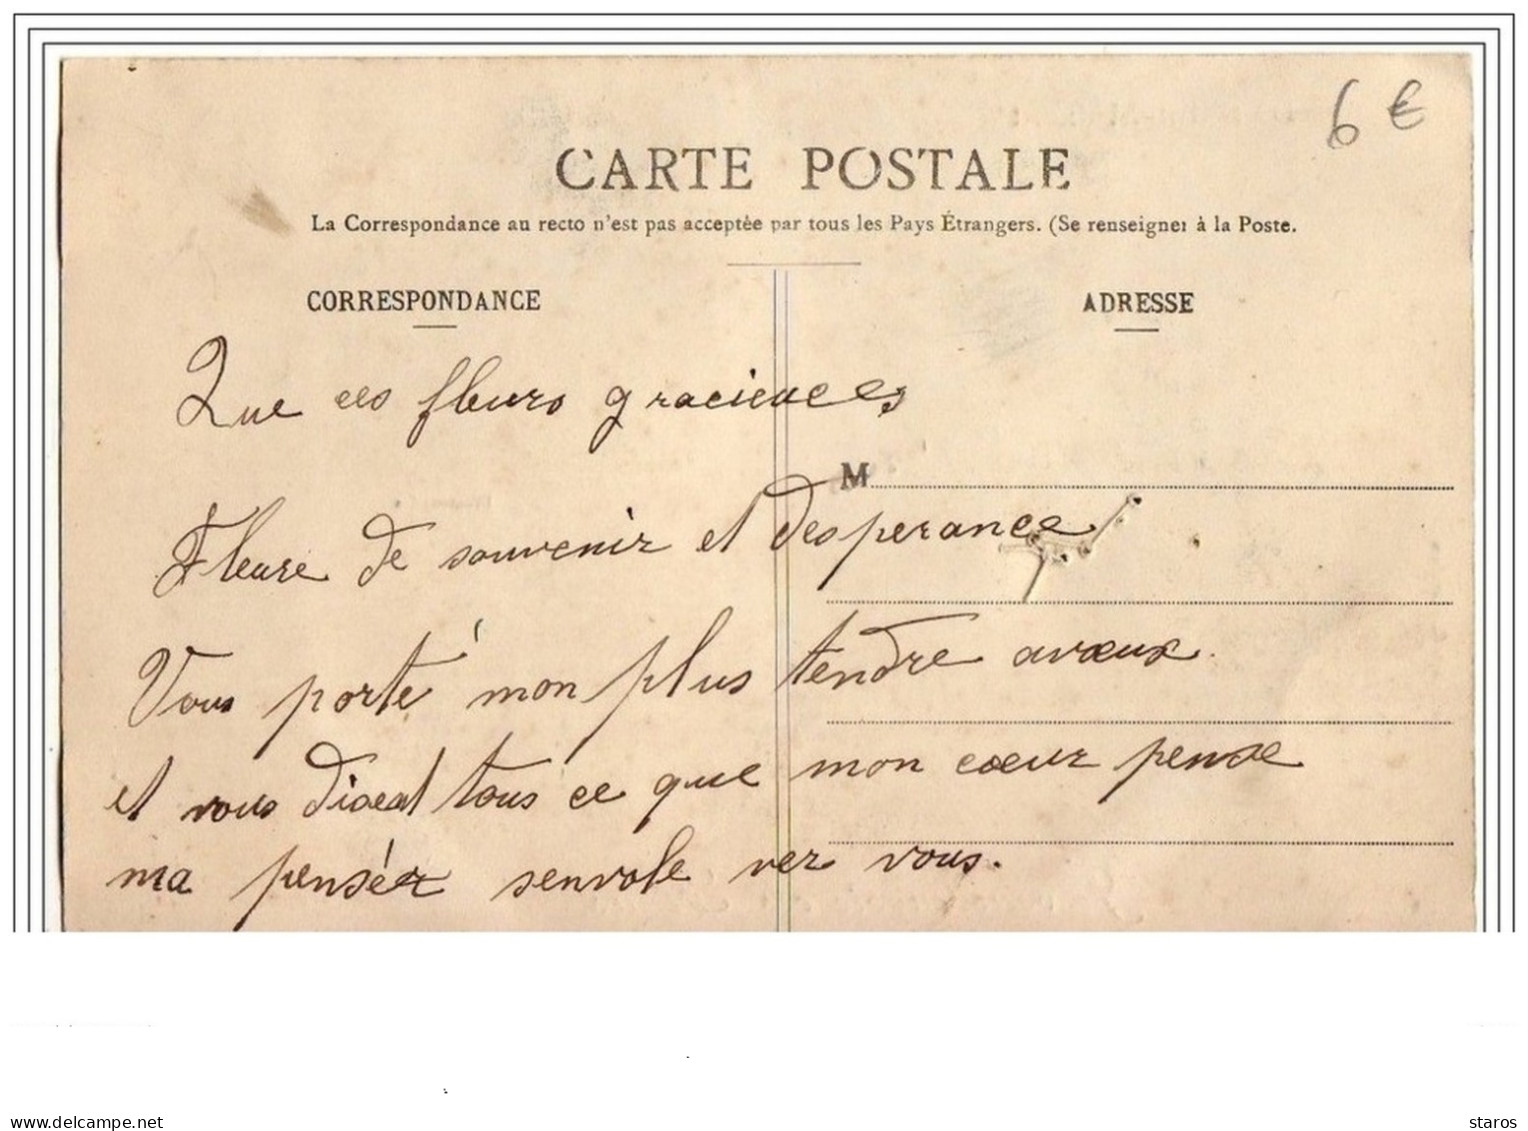 6 €
CARTE POSTALE
La Correspondance au recto n'est pas acceptée par tous les Pays Étrangers. (Se renseigner à la Poste.
CORRESPONDANCE
ADRESSE
Que ces fleurs gracieuces
M
Fleure de souvenir et desperance
Vous porté mon plus tendre avoeux.
et vous diseat tous ce que mon coeur pense
ma penséer senvole ver vous.
delcampe.net
staros